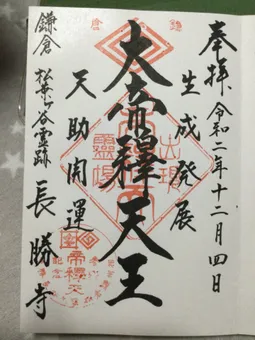 奉拝 令和二年十二月四日
生成発展
大帝釋天王
天助開運
鎌倉 松葉ヶ谷霊跡 長勝寺
鎌倉
出現
霊場
帝釋天